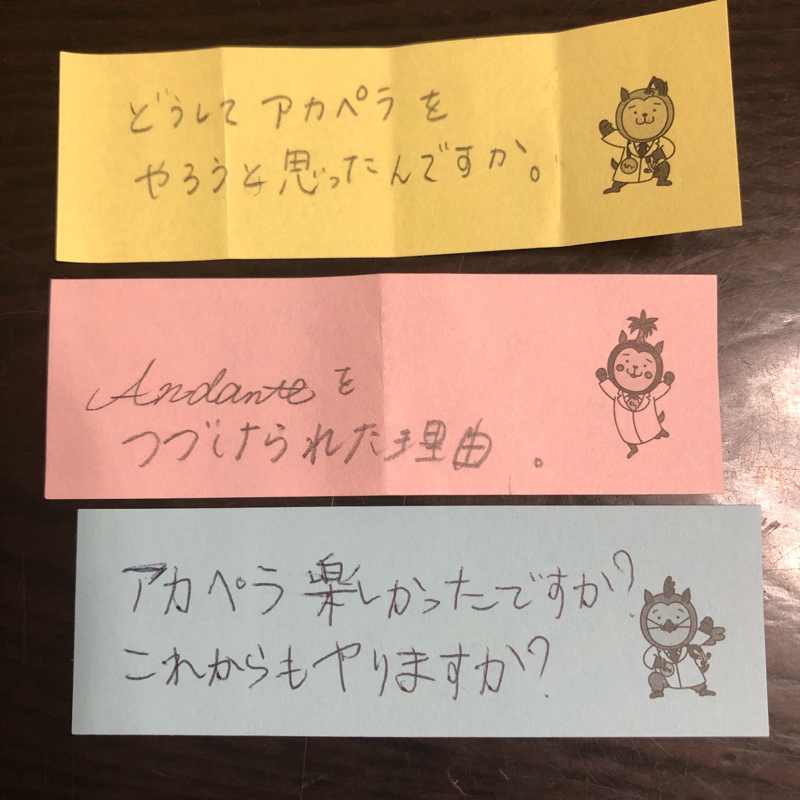 どうしてアカペラを
やろうと思ったんですか。
Andanteを
つづけられた理由。
アカペラ楽しかったですか?
これからもやりますか?